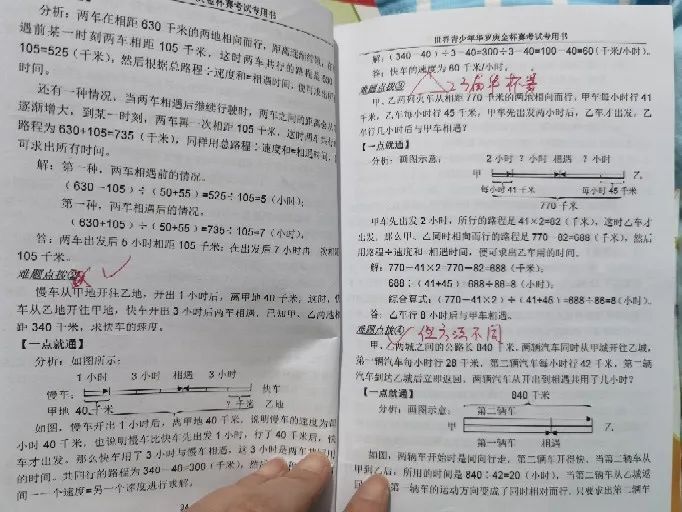 杯赛考试专用书
分析：两车在相距 630 千米的两地相向而行，距离逐渐缩短，在相
遇前某一时刻两车相距 105 千米，这时两车共行的路程是 630
105=525（千米），然后根据总路程÷速度和=相遇时间，便可求出
时间。
还有一种情况，当两车相遇后继续行驶时，两车之间的距离会从
逐渐增大，到某一时刻，两车再一次相距 105 千米，这时两车共行
路程为 630+105=735（千米），同样用总路程÷速度和=相遇时间，
可求出所有时间。
解：第一种，两车相遇前的情况。
（630－105）÷（50+55）=525÷105=5（小时）；
第一种，两车相遇后的情况。
（630+105）÷（50+55）=735÷105=7（小时）。
答：两车出发后 5 小时相距 105 千米；在出发后 7 小时再一次相距
105 千米。
难题点拨②
慢车从甲地开往乙地，开出 1 小时后，离甲地 40 千米，这时，快
车从乙地开往甲地，快车开出 3 小时后两车相遇，已知甲、乙两地相
距 340 千米，求快车的速度。
【一点就通】
分析：如图所示：
1 小时 3 小时 相遇 3 小时
慢车： 快车
甲地 40 千米 ? 千米 乙地
如图，慢车开出 1 小时后，离甲地 40 千米，说明慢车的速度为每
小时 40 千米，也说明慢车比快车先出发 1 小时，行了 40 千米后，快
车才出发。那么快车用了 3 小时与慢车相遇，这 3 小时是两车共同
的时间。共同行的路程为 340－40=300（千米），
间－一个速度=另一个速度进行求解。
世界青少年华罗庚金杯赛考试专用书
解：（340－40）÷3－40=300÷3－40=100－40=60（千米/小时）。
答：快车的速度为 60 千米/小时。
难题点拨③ 23届华杯赛
甲、乙两列火车从相距 770 千米的两地相向而行，甲车每小时行 41
千米，乙车每小时行 45 千米，甲车先出发两小时后，乙车才出发，乙
车行几小时后与甲车相遇？
【一点就通】
分析：画图示意： 2 小时 ? 小时 相遇 ? 小时
甲 乙
每小时 41 千米 每小时 45 千米
770 千米
甲车先出发 2 小时，所行的路程是 41×2=82（千米），这时乙车才
出发，那么甲、乙同时相向而行的路程是 770－82=688（千米），然后
用路程÷速度和=相遇时间，便可求出乙车行的时间。
解：770－41×2=770－82=688（千米）；
688÷（41+45）=688÷86=8（小时）
综合算式：（770－41×2）÷（41+45）=688÷86=8（小时）
答：乙车行 8 小时后与甲车相遇。
难题点拨④ 但方法不同
甲、乙两城之间的公路长 840 千米，两辆汽车同时从甲城开往乙城，
第一辆汽车每小时行 28 千米，第二辆汽车每小时行 42 千米，第二辆
汽车到达乙城后立即返回，两辆汽车从开出到相遇共用了几小时？
【一点就通】 840 千米
分析：画图示意： 第二辆车
甲 乙
第一辆车 相遇
如图，两辆车开始时是同向行走，第二辆车开得快，当第二辆车从
甲到乙后，所用的时间是 840÷42=20（小时），当第二辆车从乙城返
第一辆车的运动方向变成了同时相对而行，只要求出第二辆车